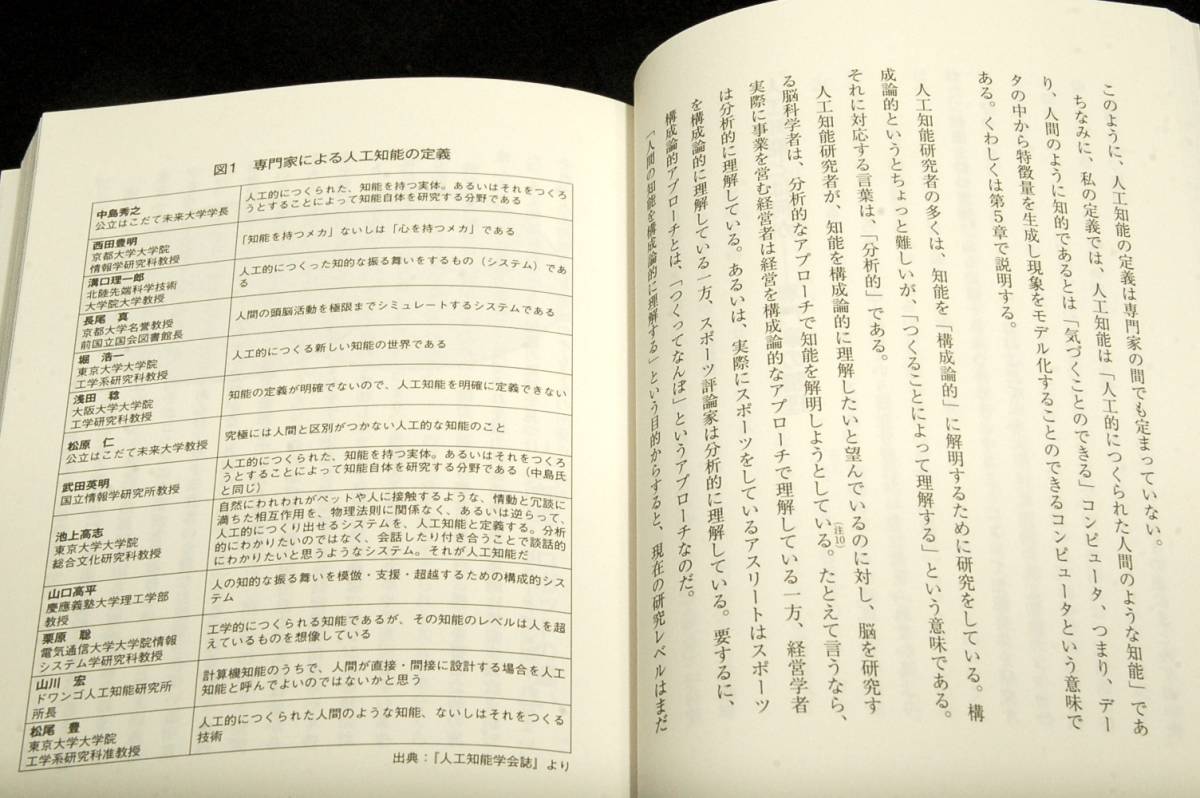 このように、人工知能の定義は専門家の間でも定まっていない。
ちなみに、私の定義では、人工知能は「人工的につくられた人間のような知能」であ
り、人間のように知的であるとは「気づくことのできる」コンピュータ、つまり、デー
タの中から特徴量を生成し現象をモデル化することのできるコンピュータという意味で
ある。くわしくは第5章で説明する。
人工知能研究者の多くは、知能を「構成論的」に解明するために研究をしている。構
成論的というとちょっと難しいが、「つくることによって理解する」という意味である。
それに対応する言葉は、「分析的」である。
人工知能研究者が、知能を構成論的に理解したいと望んでいるのに対し、脳を研究す
る脳科学者は、分析的なアプローチで知能を解明しようとしている(注10)。たとえて言うなら、
実際に事業を営む経営者は経営を構成論的なアプローチで理解している一方、経営学者
は分析的に理解している。あるいは、実際にスポーツをしているアスリートはスポーツ
を構成論的に理解している一方、スポーツ評論家は分析的に理解している。要するに、
構成論的アプローチとは、「つくってなんぼ」というアプローチなのだ。
「人間の知能を構成論的に理解する」という目的からすると、現在の研究レベルはまだ
図1 専門家による人工知能の定義
中島秀之
公立はこだて未来大学学長
人工的につくられた、知能を持つ実体。あるいはそれをつくろ
うとすることによって知能自体を研究する分野である
西田豊明
京都大学大学院
情報学研究科教授
「知能を持つメカ」ないしは「心を持つメカ」である
溝口理一郎
北陸先端科学技術
大学院大学教授
人工的につくった知的な振る舞いをするもの（システム）であ
る
長尾 真
京都大学名誉教授
前国立国会図書館長
人間の頭脳活動を極限までシミュレートするシステムである
堀 浩一
東京大学大学院
工学系研究科教授
人工的につくる新しい知能の世界である
浅田 稔
大阪大学大学院
工学研究科教授
知能の定義が明確でないので、人工知能を明確に定義できない
松原 仁
公立はこだて未来大学教授
究極には人間と区別がつかない人工的な知能のこと
武田英明
国立情報学研究所教授
人工的につくられた、知能を持つ実体。あるいはそれをつくろ
うとすることによって知能自体を研究する分野である（中島氏
と同じ）
池上高志
東京大学大学院
総合文化研究科教授
自然にわれわれがペットや人に接触するような、情動と冗談に
満ちた相互作用を、物理法則に関係なく、あるいは逆らって、
人工的につくり出せるシステムを、人工知能と定義する。分析
的にわかりたいのではなく、会話したり付き合うことで談話的
にわかりたいと思うようなシステム。それが人工知能だ
山口高平
慶應義塾大学理工学部
教授
人の知的な振る舞いを模倣・支援・超越するための構成的シス
テム
栗原 聡
電気通信大学大学院情報
システム学研究科教授
工学的につくられる知能であるが、その知能のレベルは人を超
えているものを想像している
山川 宏
ドワンゴ人工知能研究所
所長
計算機知能のうちで、人間が直接・間接に設計する場合を人工
知能と呼んでよいのではないかと思う
松尾 豊
東京大学大学院
工学系研究科准教授
人工的につくられた人間のような知能、ないしはそれをつくる
技術
出典：『人工知能学会誌』より